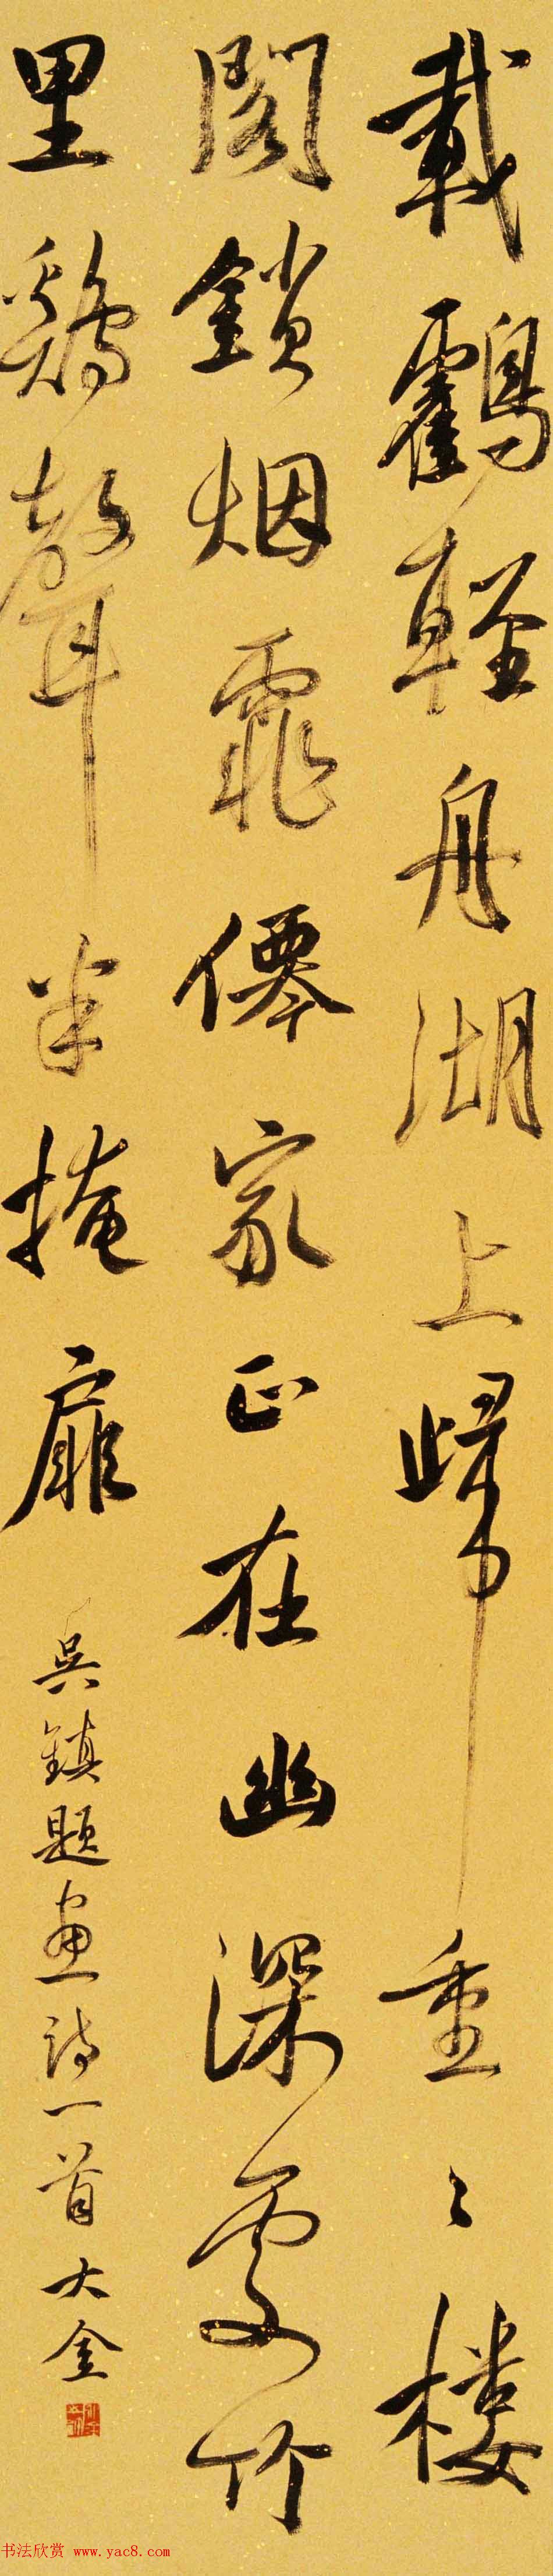 載鸖輕舟湖上歸重〻楼
閣鎖烟霏僊家正在幽深處竹
里鷄聲半掩扉
吴鎮题画诗一首大金
书法欣赏 www.yac8.com